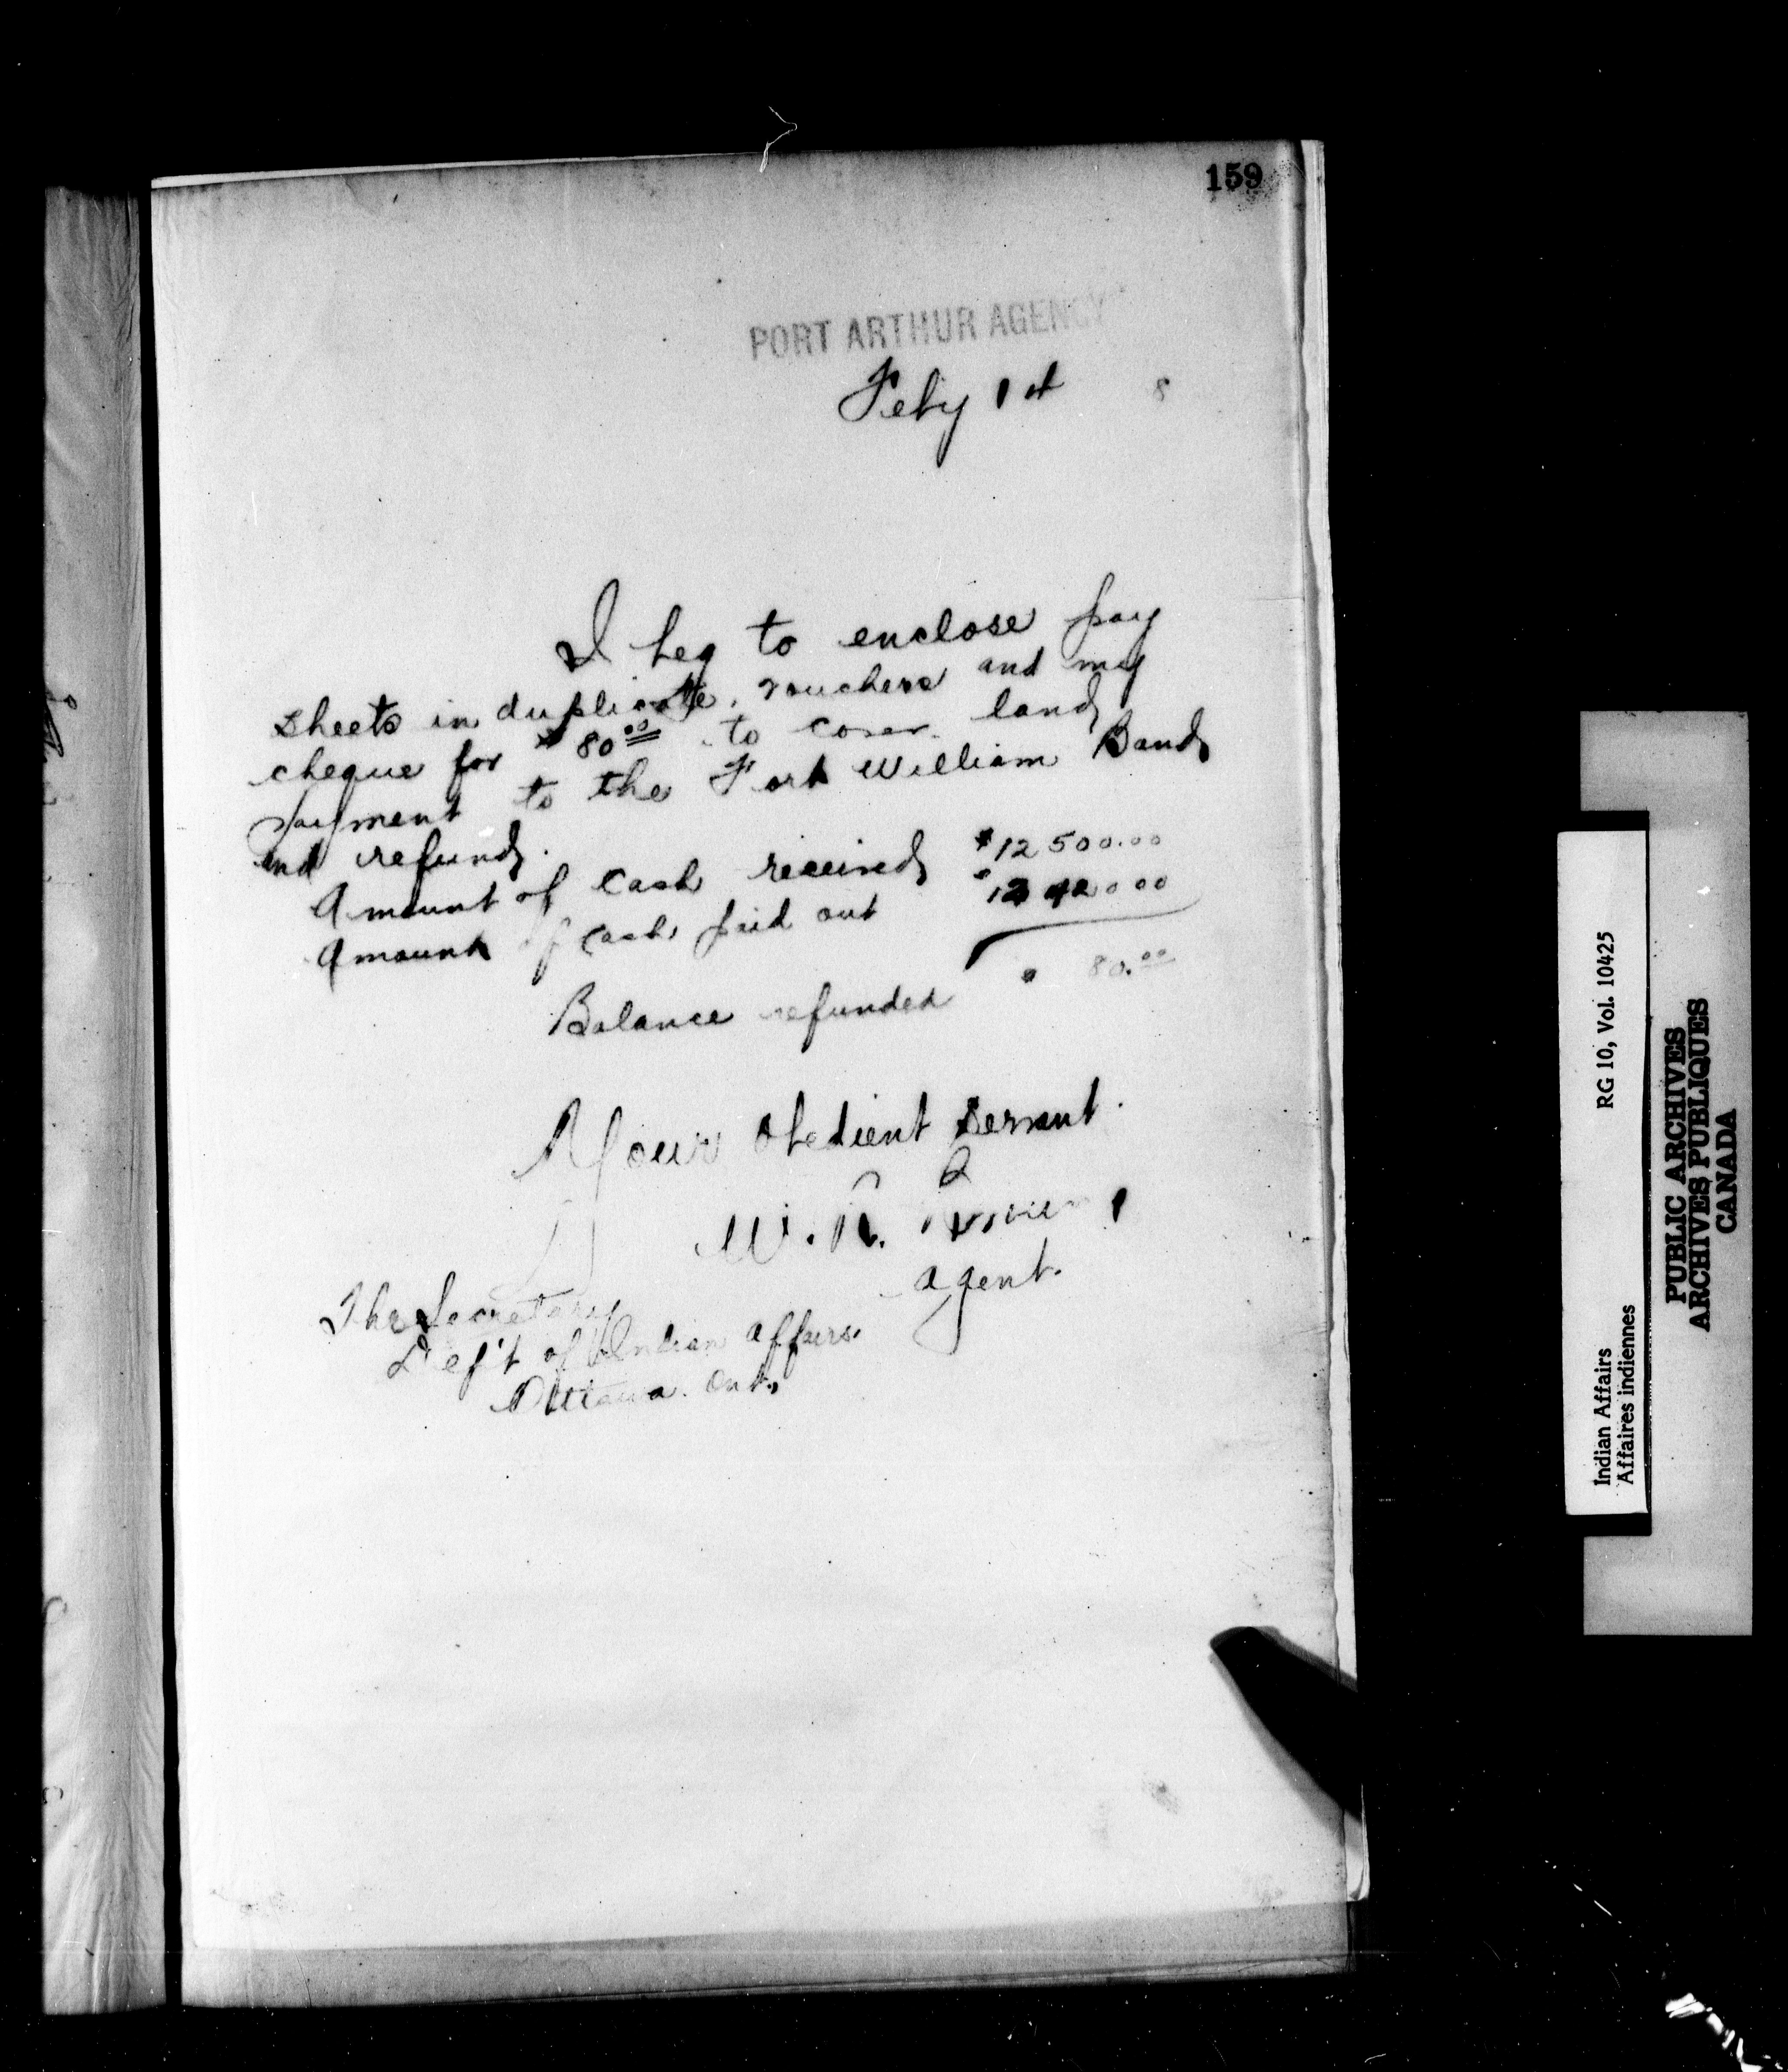 159
PORT ARTHUR AGENCY
Feby 1st 8
I beg to enclose pay
sheets in duplicate, vouchers and my
cheque for $80.00 to cover land
payment to the Fort William Band
and refund.
Amount of cash received $12500.00
Amount of cash paid out 12420 00
Balance refunded 80.00
Your obedient servant.
W. R. Brown
Agent.
The Secretary
Dep't of Indian Affairs.
Ottawa. Ont.
Indian Affairs RG 10, Vol. 10425
Affaires indiennes
PUBLIC ARCHIVES
ARCHIVES PUBLIQUES
CANADA